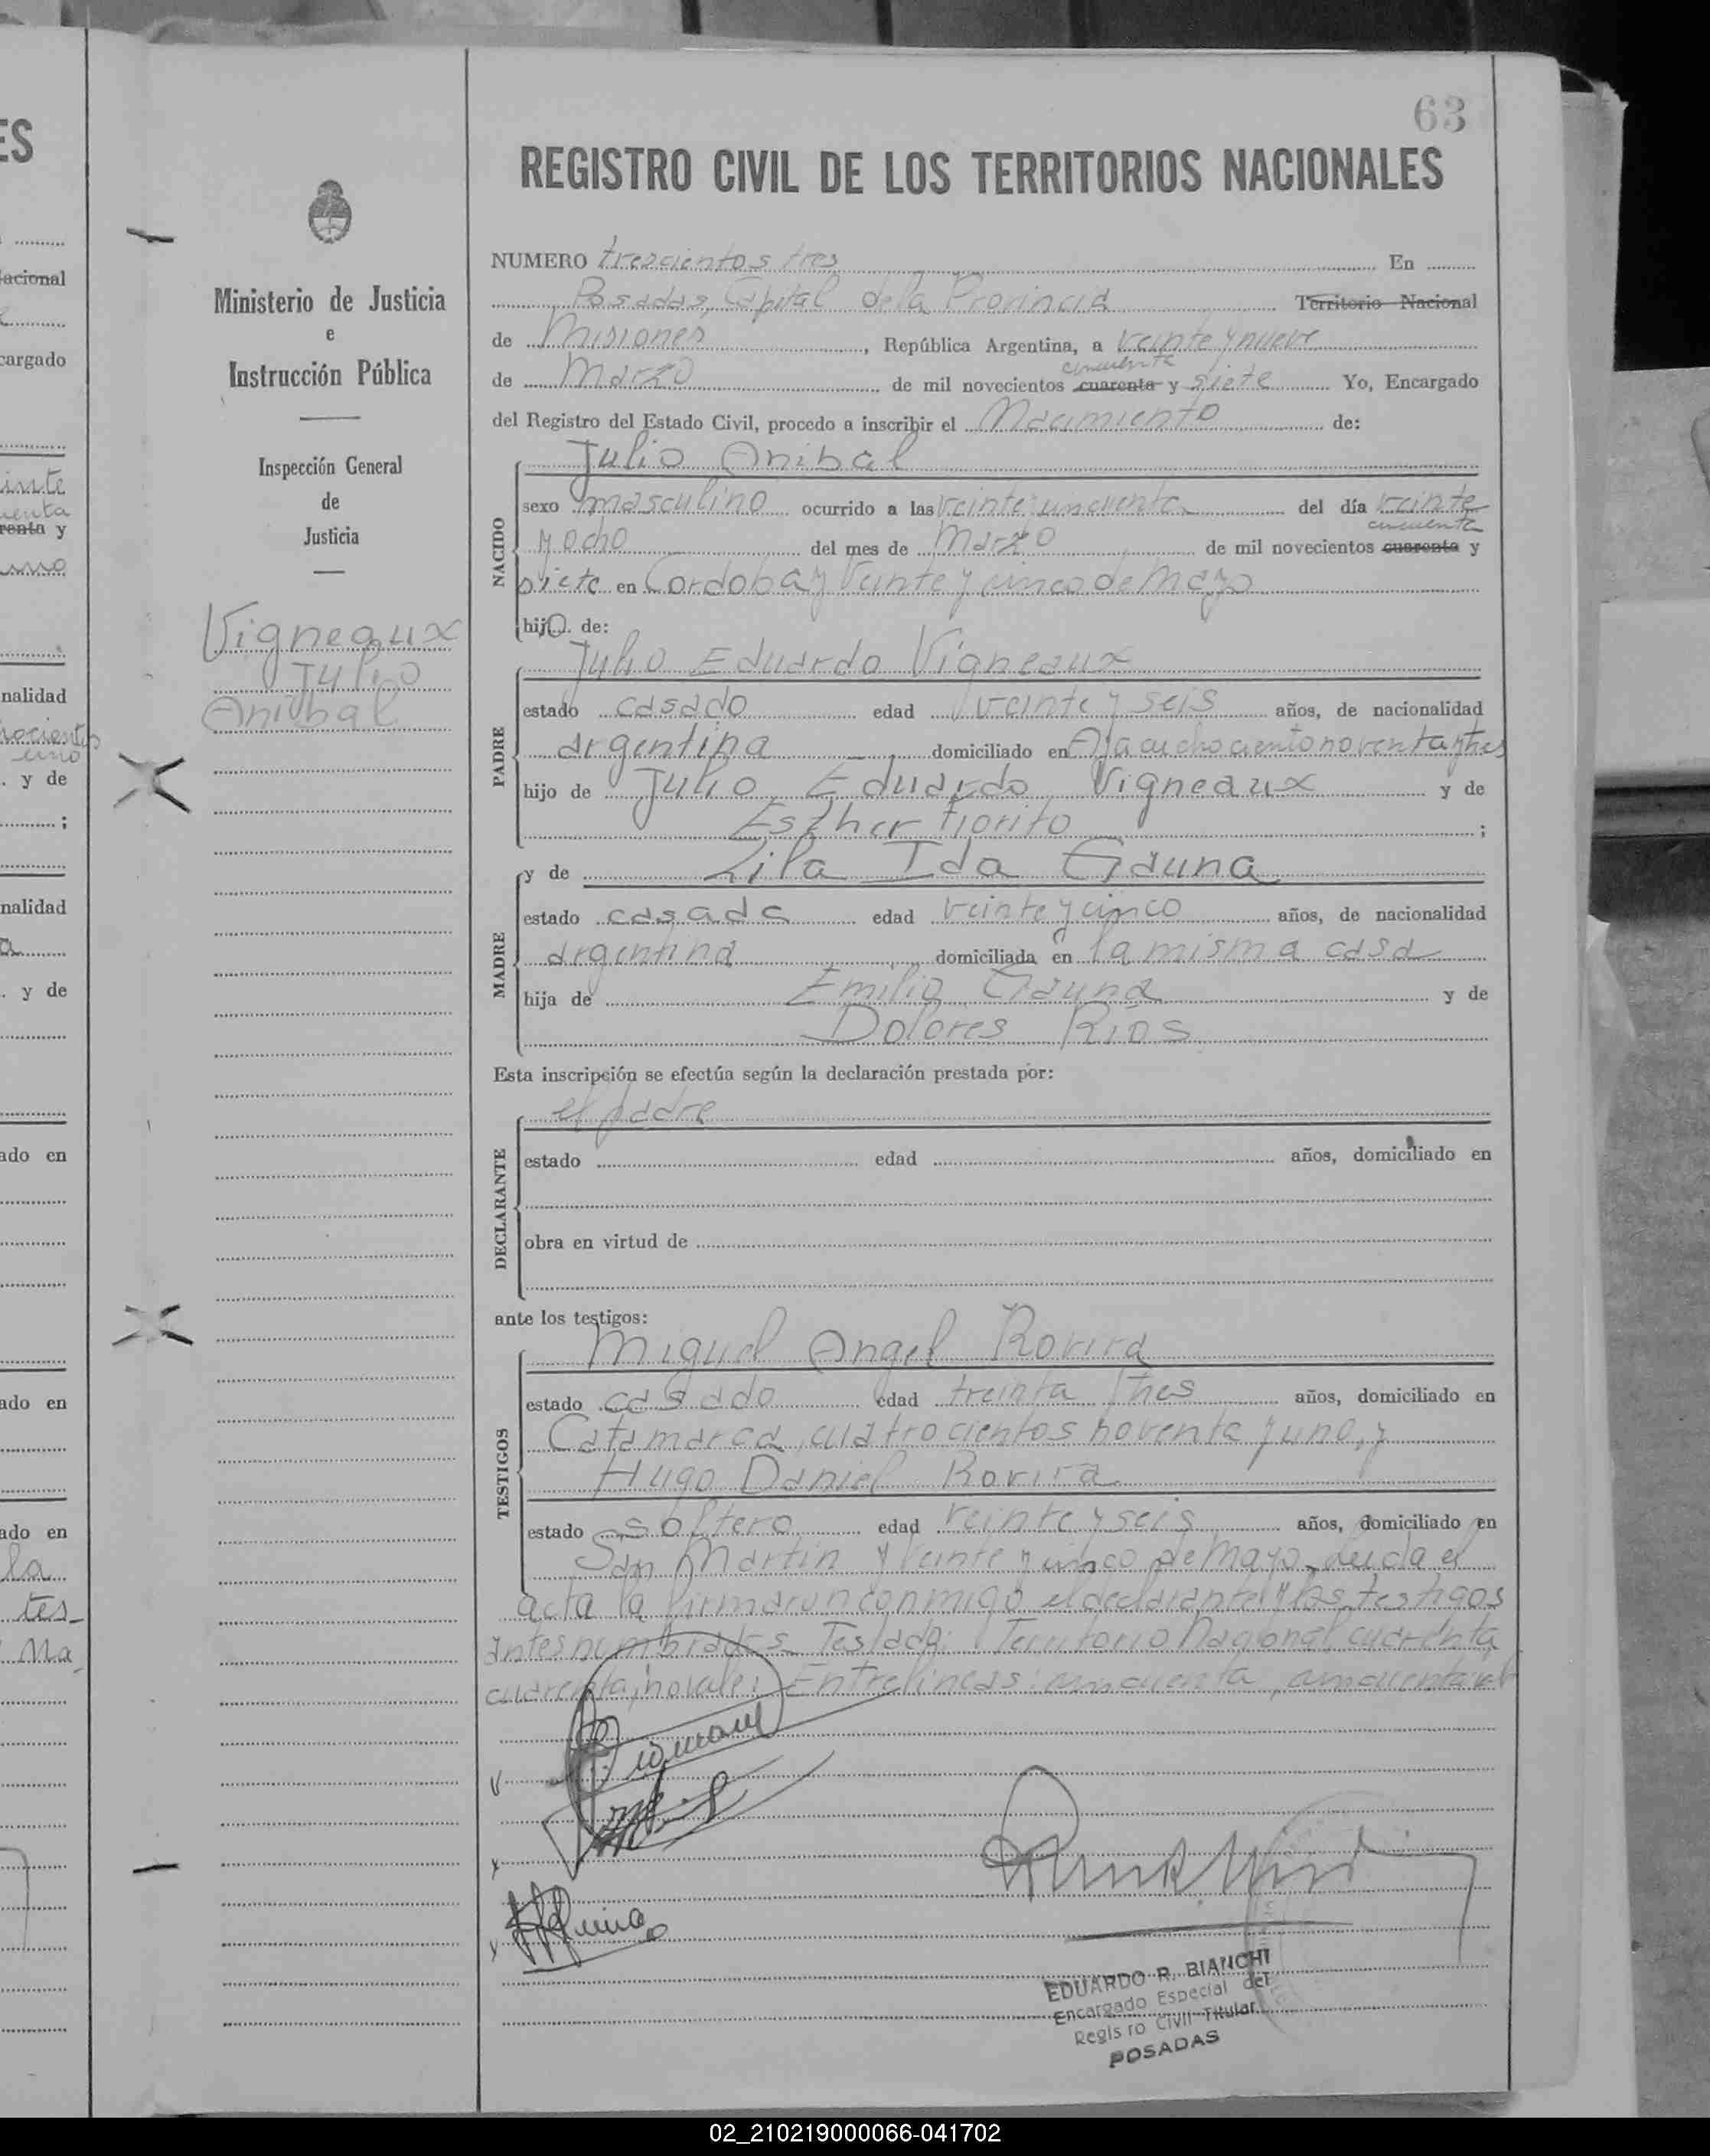 63
REGISTRO CIVIL DE LOS TERRITORIOS NACIONALES
Ministerio de Justicia
e
Instrucción Pública
Inspección General
de
Justicia
Vigneaux
Julio
Anibal
NUMERO trescientos tres En
Posadas, Capital de la Provincia Territorio Nacional
de Misiones, República Argentina, a veinte y nueve
cincuenta
de Marzo de mil novecientos cuarenta y siete Yo, Encargado
del Registro del Estado Civil, procedo a inscribir el Nacimiento de:
NACIDO
Julio Anibal
sexo masculino ocurrido a las veinte cincuenta del día veinte
cincuenta
y ocho del mes de Marzo de mil novecientos cuarenta y
siete en Cordoba y Veinte y cinco de Mayo
hijo de:
PADRE
Julio Eduardo Vigneaux
estado casado edad veinte y seis años, de nacionalidad
argentina domiciliado en ciento noventa y tres
hijo de Julio Eduardo Vigneaux y de
Esther Fiorito ;
MADRE
y de Lila Ida Gauna
estado casada edad veinte y cinco años, de nacionalidad
argentina domiciliada en la misma casa
hija de Emilio Gauna y de
Dolores Rios
Esta inscripción se efectúa según la declaración prestada por:
DECLARANTE
el padre
estado edad años, domiciliado en
obra en virtud de
ante los testigos:
TESTIGOS
Miguel Angel Rovira
estado casado edad treinta y tres años, domiciliado en
Catamarca, cuatrocientos noventa y uno, y
Hugo Daniel Rovira
estado soltero edad veinte y seis años, domiciliado en
San Martin y Veinte y cinco de Mayo. Leida el
acta la firmaron conmigo el declarante y los testigos
antes nombrados. Testado: Territorio Nacional cuarenta
cuarenta, no vale: Entrelineas: cincuenta, cincuenta vale
EDUARDO R. BIANCHI
Encargado Especial del
Regis ro Civil Titular
POSADAS
02_210219000066-041702